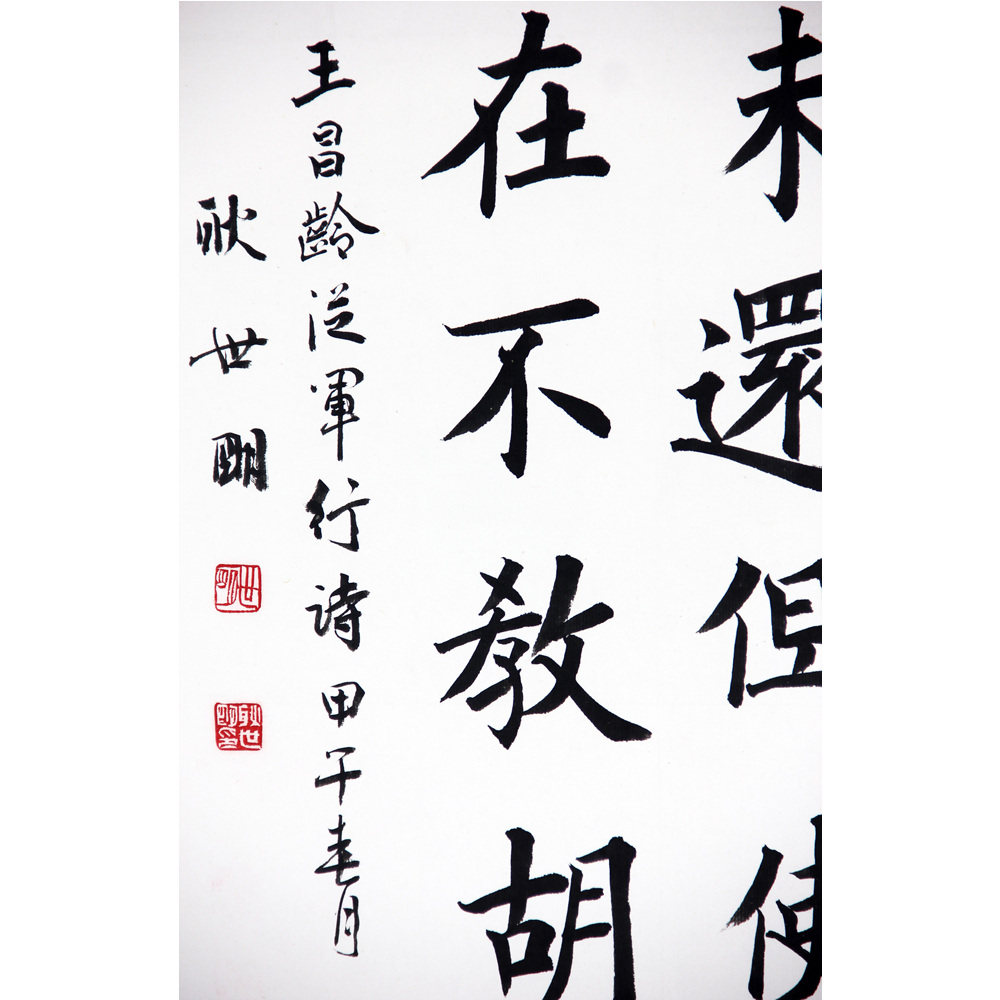 未還但使
在不教胡
王昌齡從軍行詩甲午春月
耿世明
世明